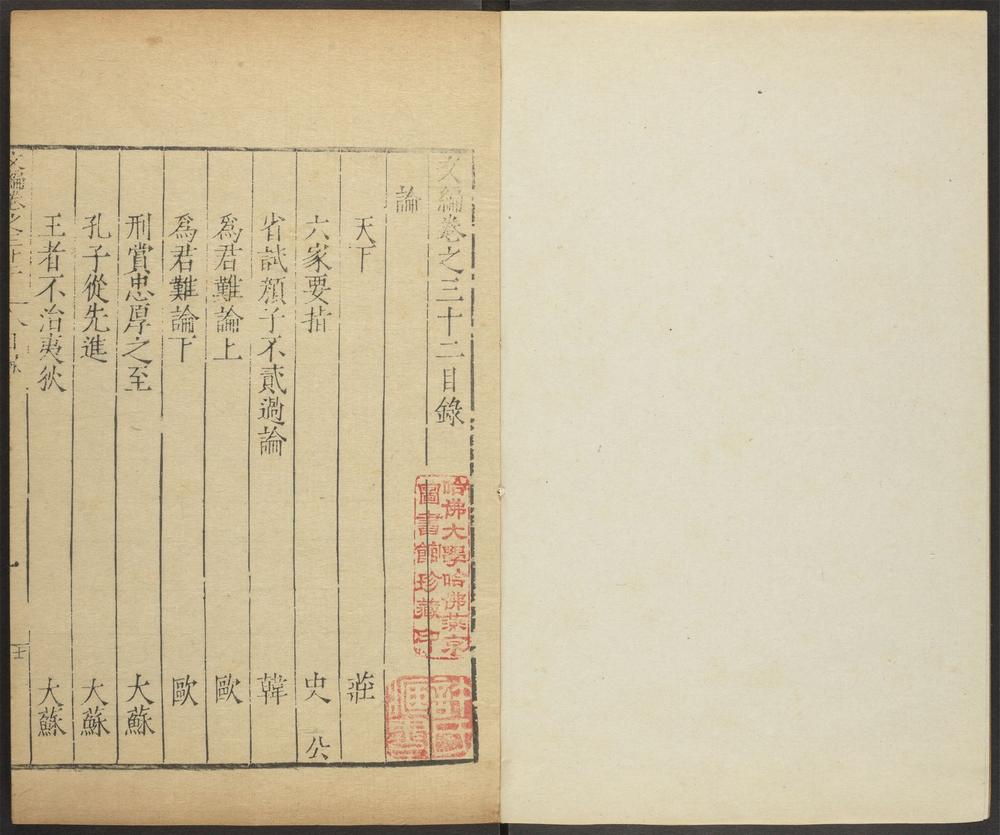 文編卷之三十二目錄
論
天下 莊
六家要指 史公
省試顏子不貳過論 韓
爲君難論上 歐
爲君難論下 歐
刑賞忠厚之至 大蘇
孔子從先進 大蘇
王者不治夷狄 大蘇
文編卷之三十二 目錄 一
哈佛大學哈佛燕京
圖書館珍藏印